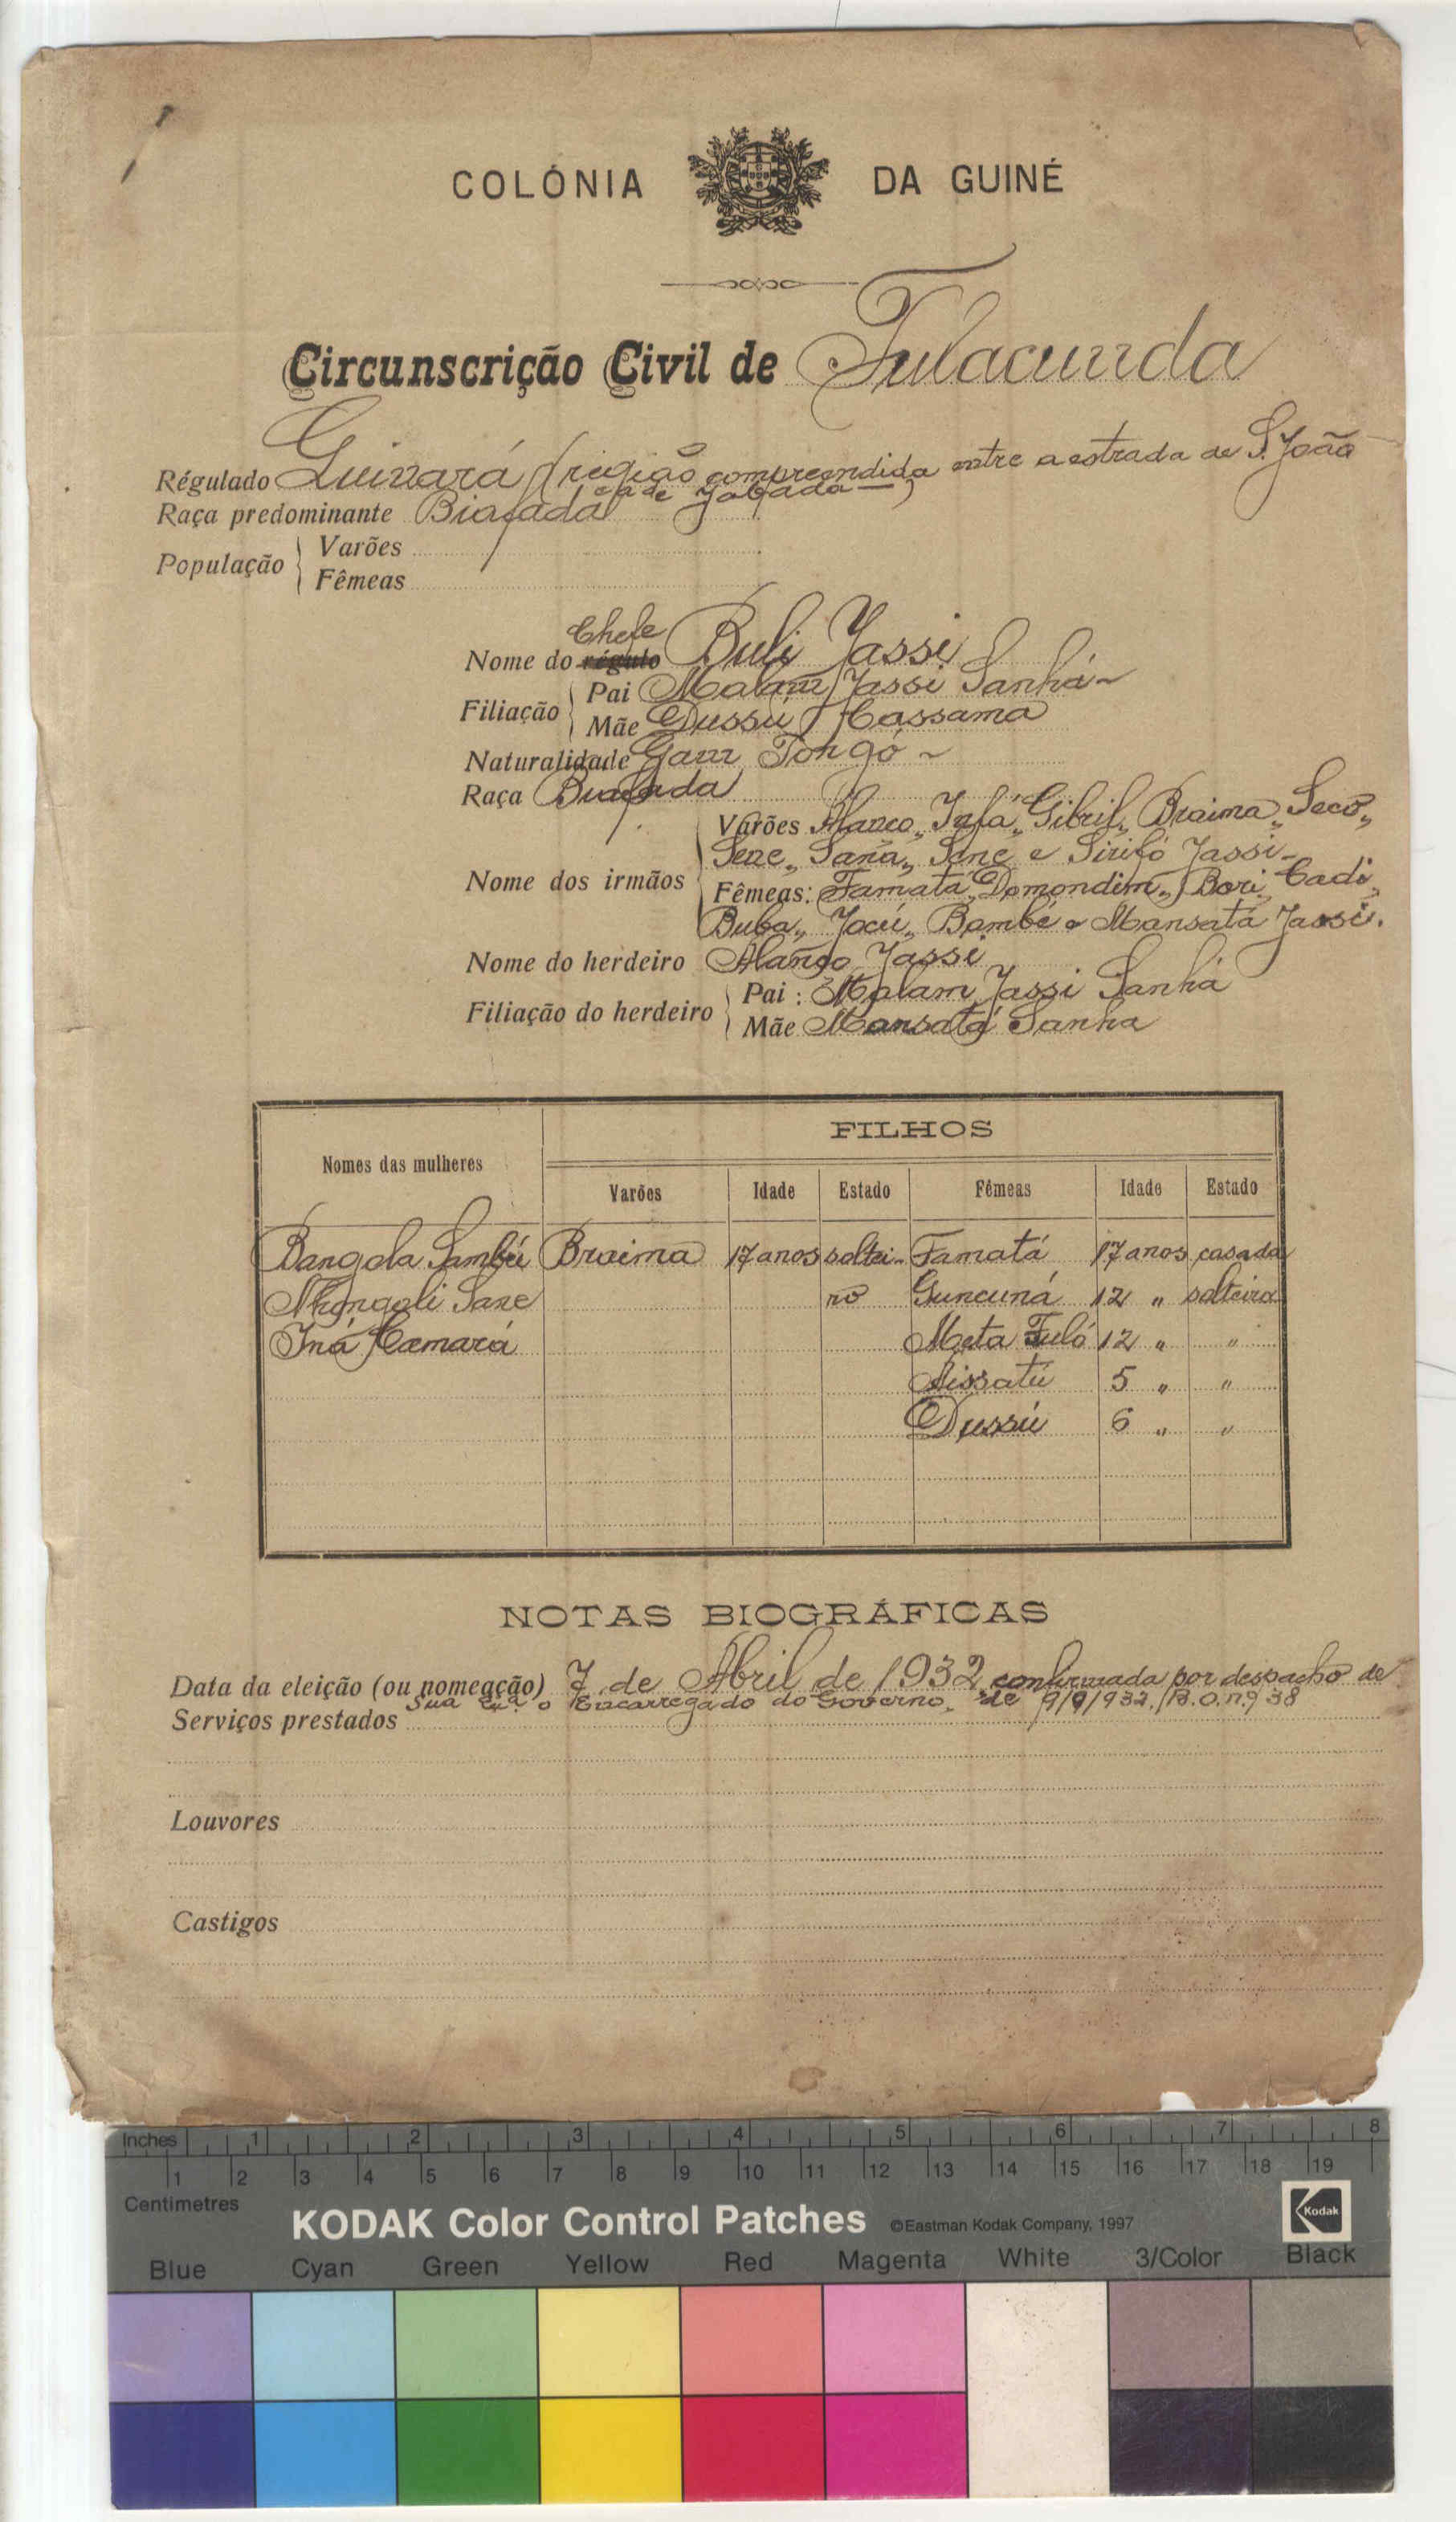 COLÓNIA DA GUINÉ
Circunscrição Civil de Fulacunda
Régulado Guinará (região compreendida entre a estrada de S. João
e a de Jabada)
Raça predominante Biafada
População
Varões
Fêmeas
Chefe
Nome do régulo Buli Jassi
Filiação
Pai Malam Jassi Sanhá
Mãe Dussú Cassama
Naturalidade Gam Tongó
Raça Biafada
Nome dos irmãos
Varões Alanco, Infá, Gibril, Braima, Seco,
Sene, Sana, Sene e Sirifo Jassi
Fêmeas: Famatá, Domondim, Bori, Cadi,
Buba, Jocú, Bambé e Mansatá Jassi.
Nome do herdeiro Alanço Jassi
Filiação do herdeiro
Pai: Malam Jassi Sanhá
Mãe Mansatá Sanha
Nomes das mulheres FILHOS
Varões Idade Estado Fêmeas Idade Estado
Bangola Sambú Braima 17 anos soltei- Famatá 17 anos casada
Nhongoli Sane ro Guncuná 12 " solteira
Iná Camará Meta Fuló 12 " "
Aissatú 5 " "
Dussú 6 " "
NOTAS BIOGRÁFICAS
Data da eleição (ou nomeação) 7 de Abril de 1932, confirmada por despacho de
Sua Exª. o Encarregado do Governo, de 9/9/932. B.O.nº 38
Serviços prestados
Louvores
Castigos
Inches 1 2 3 4 5 6 7 8
1 2 3 4 5 6 7 8 9 10 11 12 13 14 15 16 17 18 19
Centimetres
KODAK Color Control Patches ©Eastman Kodak Company, 1997 Kodak
Blue Cyan Green Yellow Red Magenta White 3/Color Black